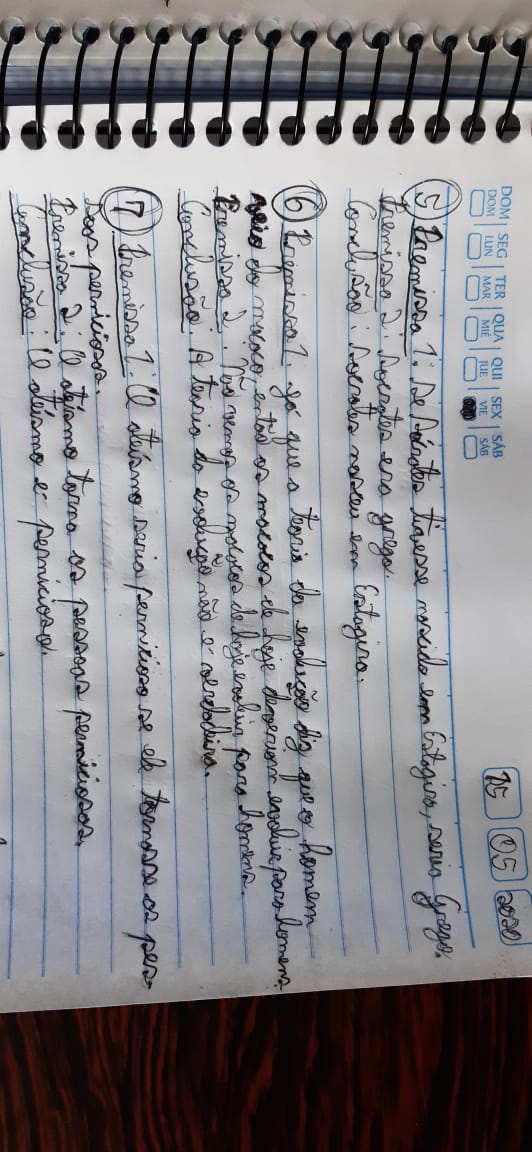 DOM SEG TER QUA QUI SEX SÁB
DOM LUN MAR MIÉ JUE VIE SÁB
15 05 2020
5 Premissa 1: Se Sócrates tivesse nascido em Estagira, seria Grego.
Premissa 2: Sócrates era grego.
Conclusão: Sócrates nasceu em Estagira.
6 Premissa 1. Já que a teoria da evolução diz que o homem
veio do macaco, então os macacos de hoje deveriam evoluir para homens.
Premissa 2. Não vemos os macacos de hoje evoluir para homens.
Conclusão A teoria da evolução não é verdadeira.
7 Premissa 1. O ateísmo seria pernicioso se ele tornasse as pes
soas perniciosas.
Premissa 2. O ateísmo torna as pessoas perniciosas.
Conclusão: O ateísmo é pernicioso.